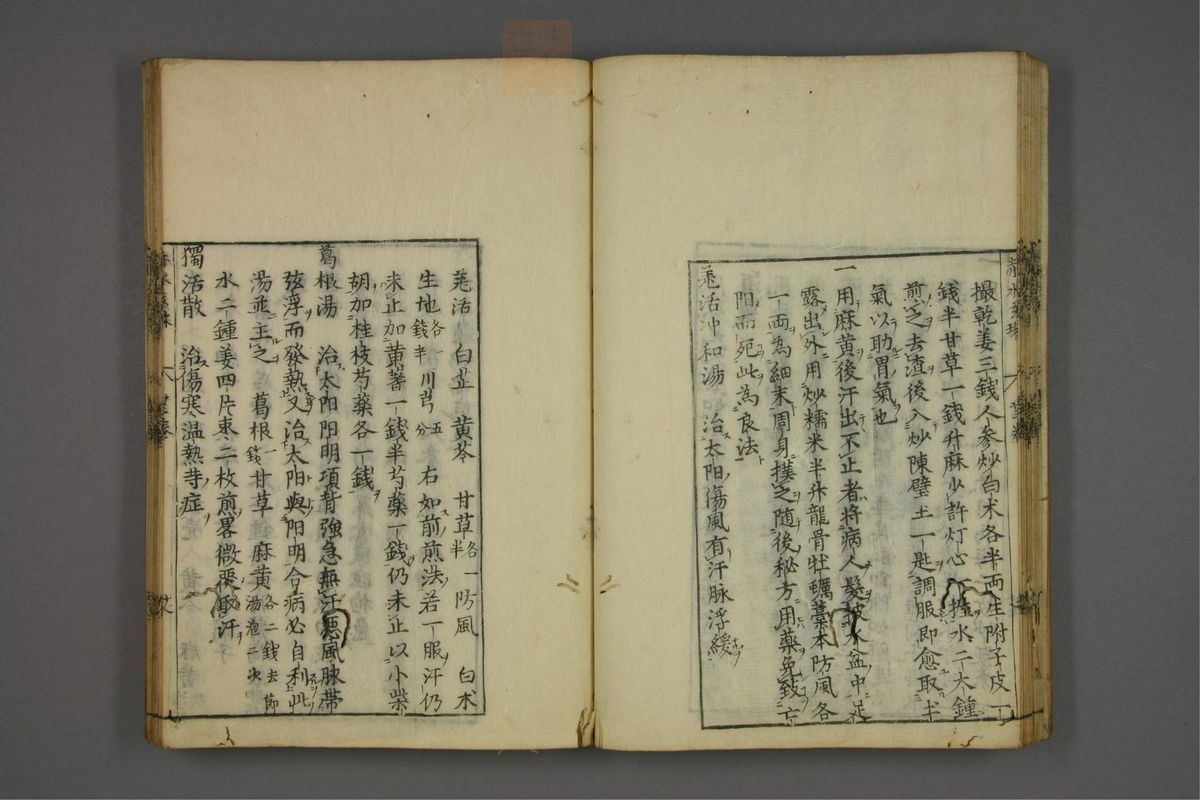 撮乾姜三錢人参炒白术各半両生附子皮一
錢半甘草一錢升麻少許灯心一撮水二大鍾
煎之去渣後入炒陳壁土一匙調服即愈取土
氣以助胃氣也
一用麻黄後汗出不止者将病人髮披水盆中足
露出外用炒糯米半升龍骨牡蠣藁本防風各
一両為細末周身撲之随後秘方用薬免致亡
阳而死此為良法
羌活冲和湯 治太阳傷風有汗脉浮緩
羌活 白芷 黄芩 甘草各一半 防風 白术
生地各一錢半 川芎五分 右如前煎法若一服汗仍
未止加黄蓍一錢半芍藥一錢仍未止以小柴
胡加桂枝芍藥各一錢
葛根湯 治太阳阳明項背強急無汗悪風脉帯
弦浮而發熱又治太阳與阳明合病必自利此
湯並主之 葛根一錢 甘草 麻黄各二錢去節湯泡二次
水二鍾姜四片枣二枚煎畧微覆取汗
獨活散 治傷寒温熱等症